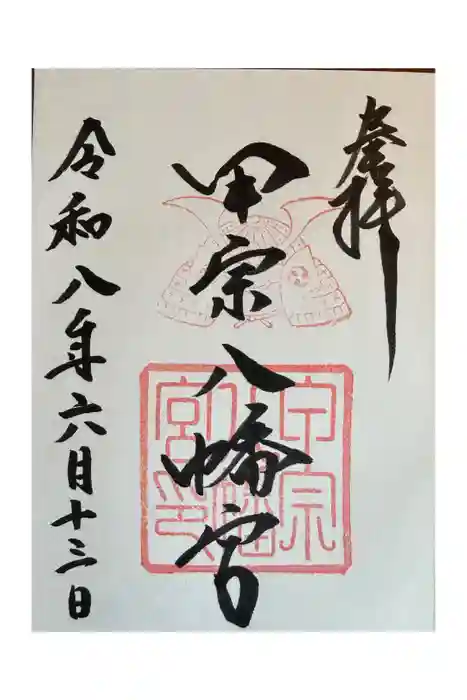 奉拝
甲宗八幡宮
甲宗
八幡
宮印
令和八年六月十三日